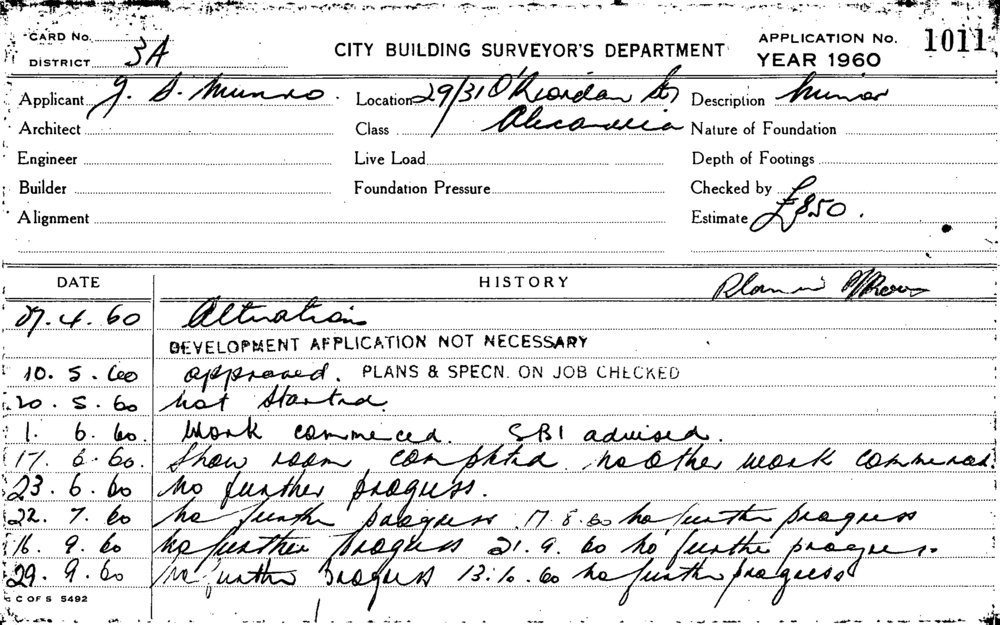 CARD No.
DISTRICT 3A
CITY BUILDING SURVEYOR'S DEPARTMENT
APPLICATION No. 1011
YEAR 1960
Applicant J. S. Munro. Location 29/31 O'Riordan St Description Minor
Architect Class Alexandria Nature of Foundation
Engineer Live Load Depth of Footings
Builder Foundation Pressure Checked by
Alignment Estimate £850.
DATE HISTORY
27.4.60 Alterations
DEVELOPMENT APPLICATION NOT NECESSARY
10.5.60 approved. PLANS & SPECN. ON JOB CHECKED
20.5.60 Not Started.
1.6.60. Work commenced. SBI advised.
17.6.60. Show room completed no other work commenced.
23.6.60 No further progress.
22.7.60 no further progress 17.8.60 no further progress
16.9.60 no further progress 21.9.60 no further progress.
29.9.60 no further progress 13.10.60 no further progress
C OF S 5492